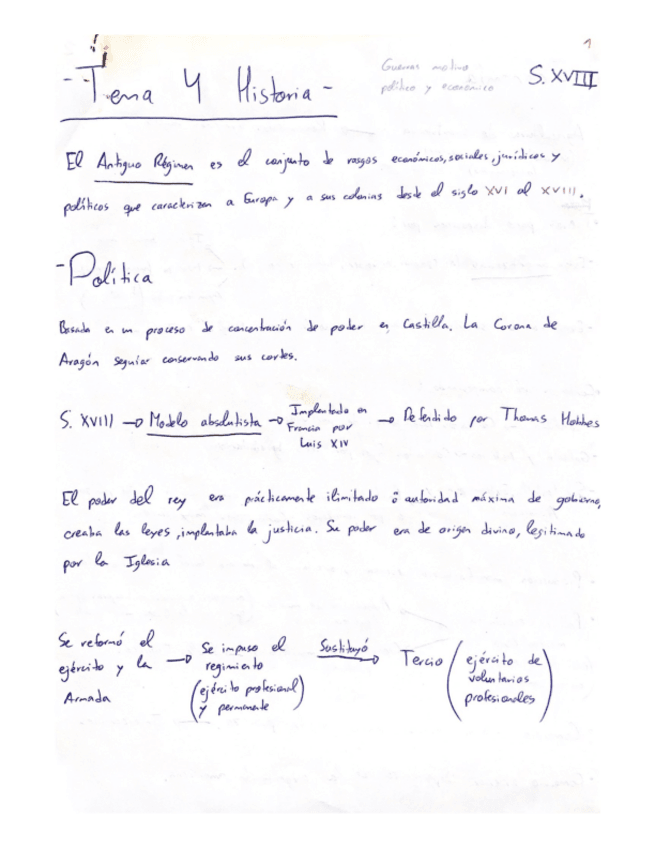 1
Guerras motivo
político y económico
S. XVIII
- Tema 4 Historia -
El Antiguo Régimen es el conjunto de rasgos económicos, sociales, jurídicos y
políticos que caracterizan a Europa y a sus colonias desde el siglo XVI al XVIII.
- Política
Basada en un proceso de concentración de poder en Castilla. La Corona de
Aragón seguían conservando sus cortes.
S. XVIII → Modelo absolutista → Implantado en Francia por Luis XIV → Defendido por Thomas Hobbes
El poder del rey era prácticamente ilimitado: autoridad máxima de gobierno,
creaba las leyes, implantaba la justicia. Su poder era de origen divino, legitimado
por la Iglesia
Se reformó el ejército y la Armada → Se impuso el regimiento (ejército profesional y permanente) Sustituyó → Tercio (ejército de voluntarios profesionales)